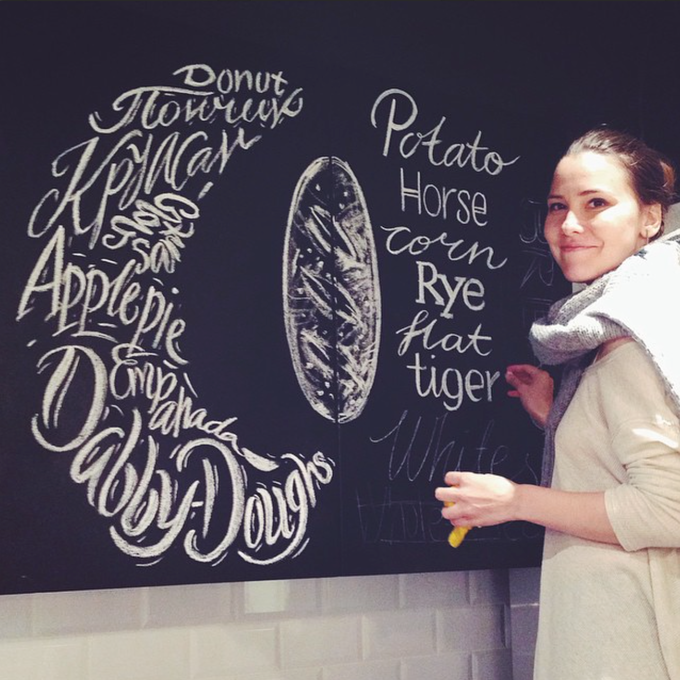 Donut
Пончик
Кружан
Applepie
Empanada
Dabby-Doughs
Potato
Horse
corn
Rye
flat
tiger
White